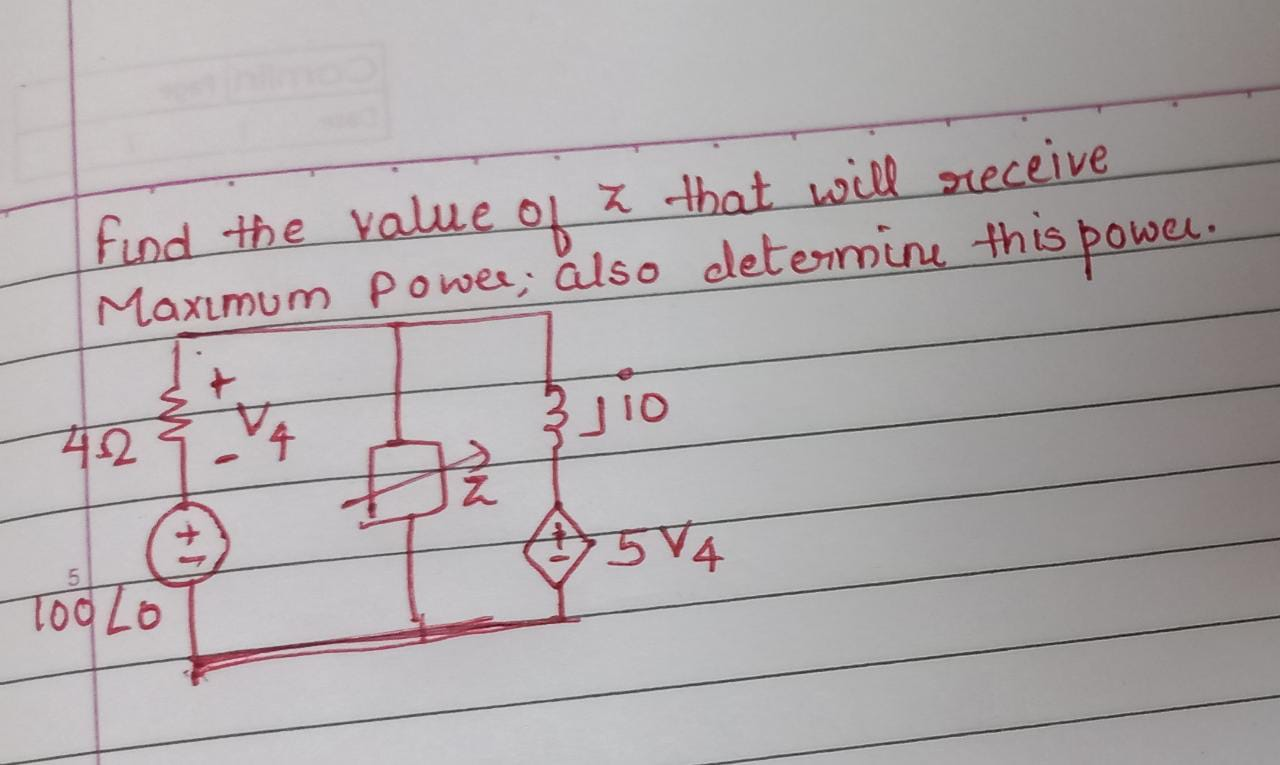 find the value of z that will receive
Maximum Power; also determine this power.
+
V4
-
4Ω
J10
z
+
-
+
-
5V4
5
100∠0